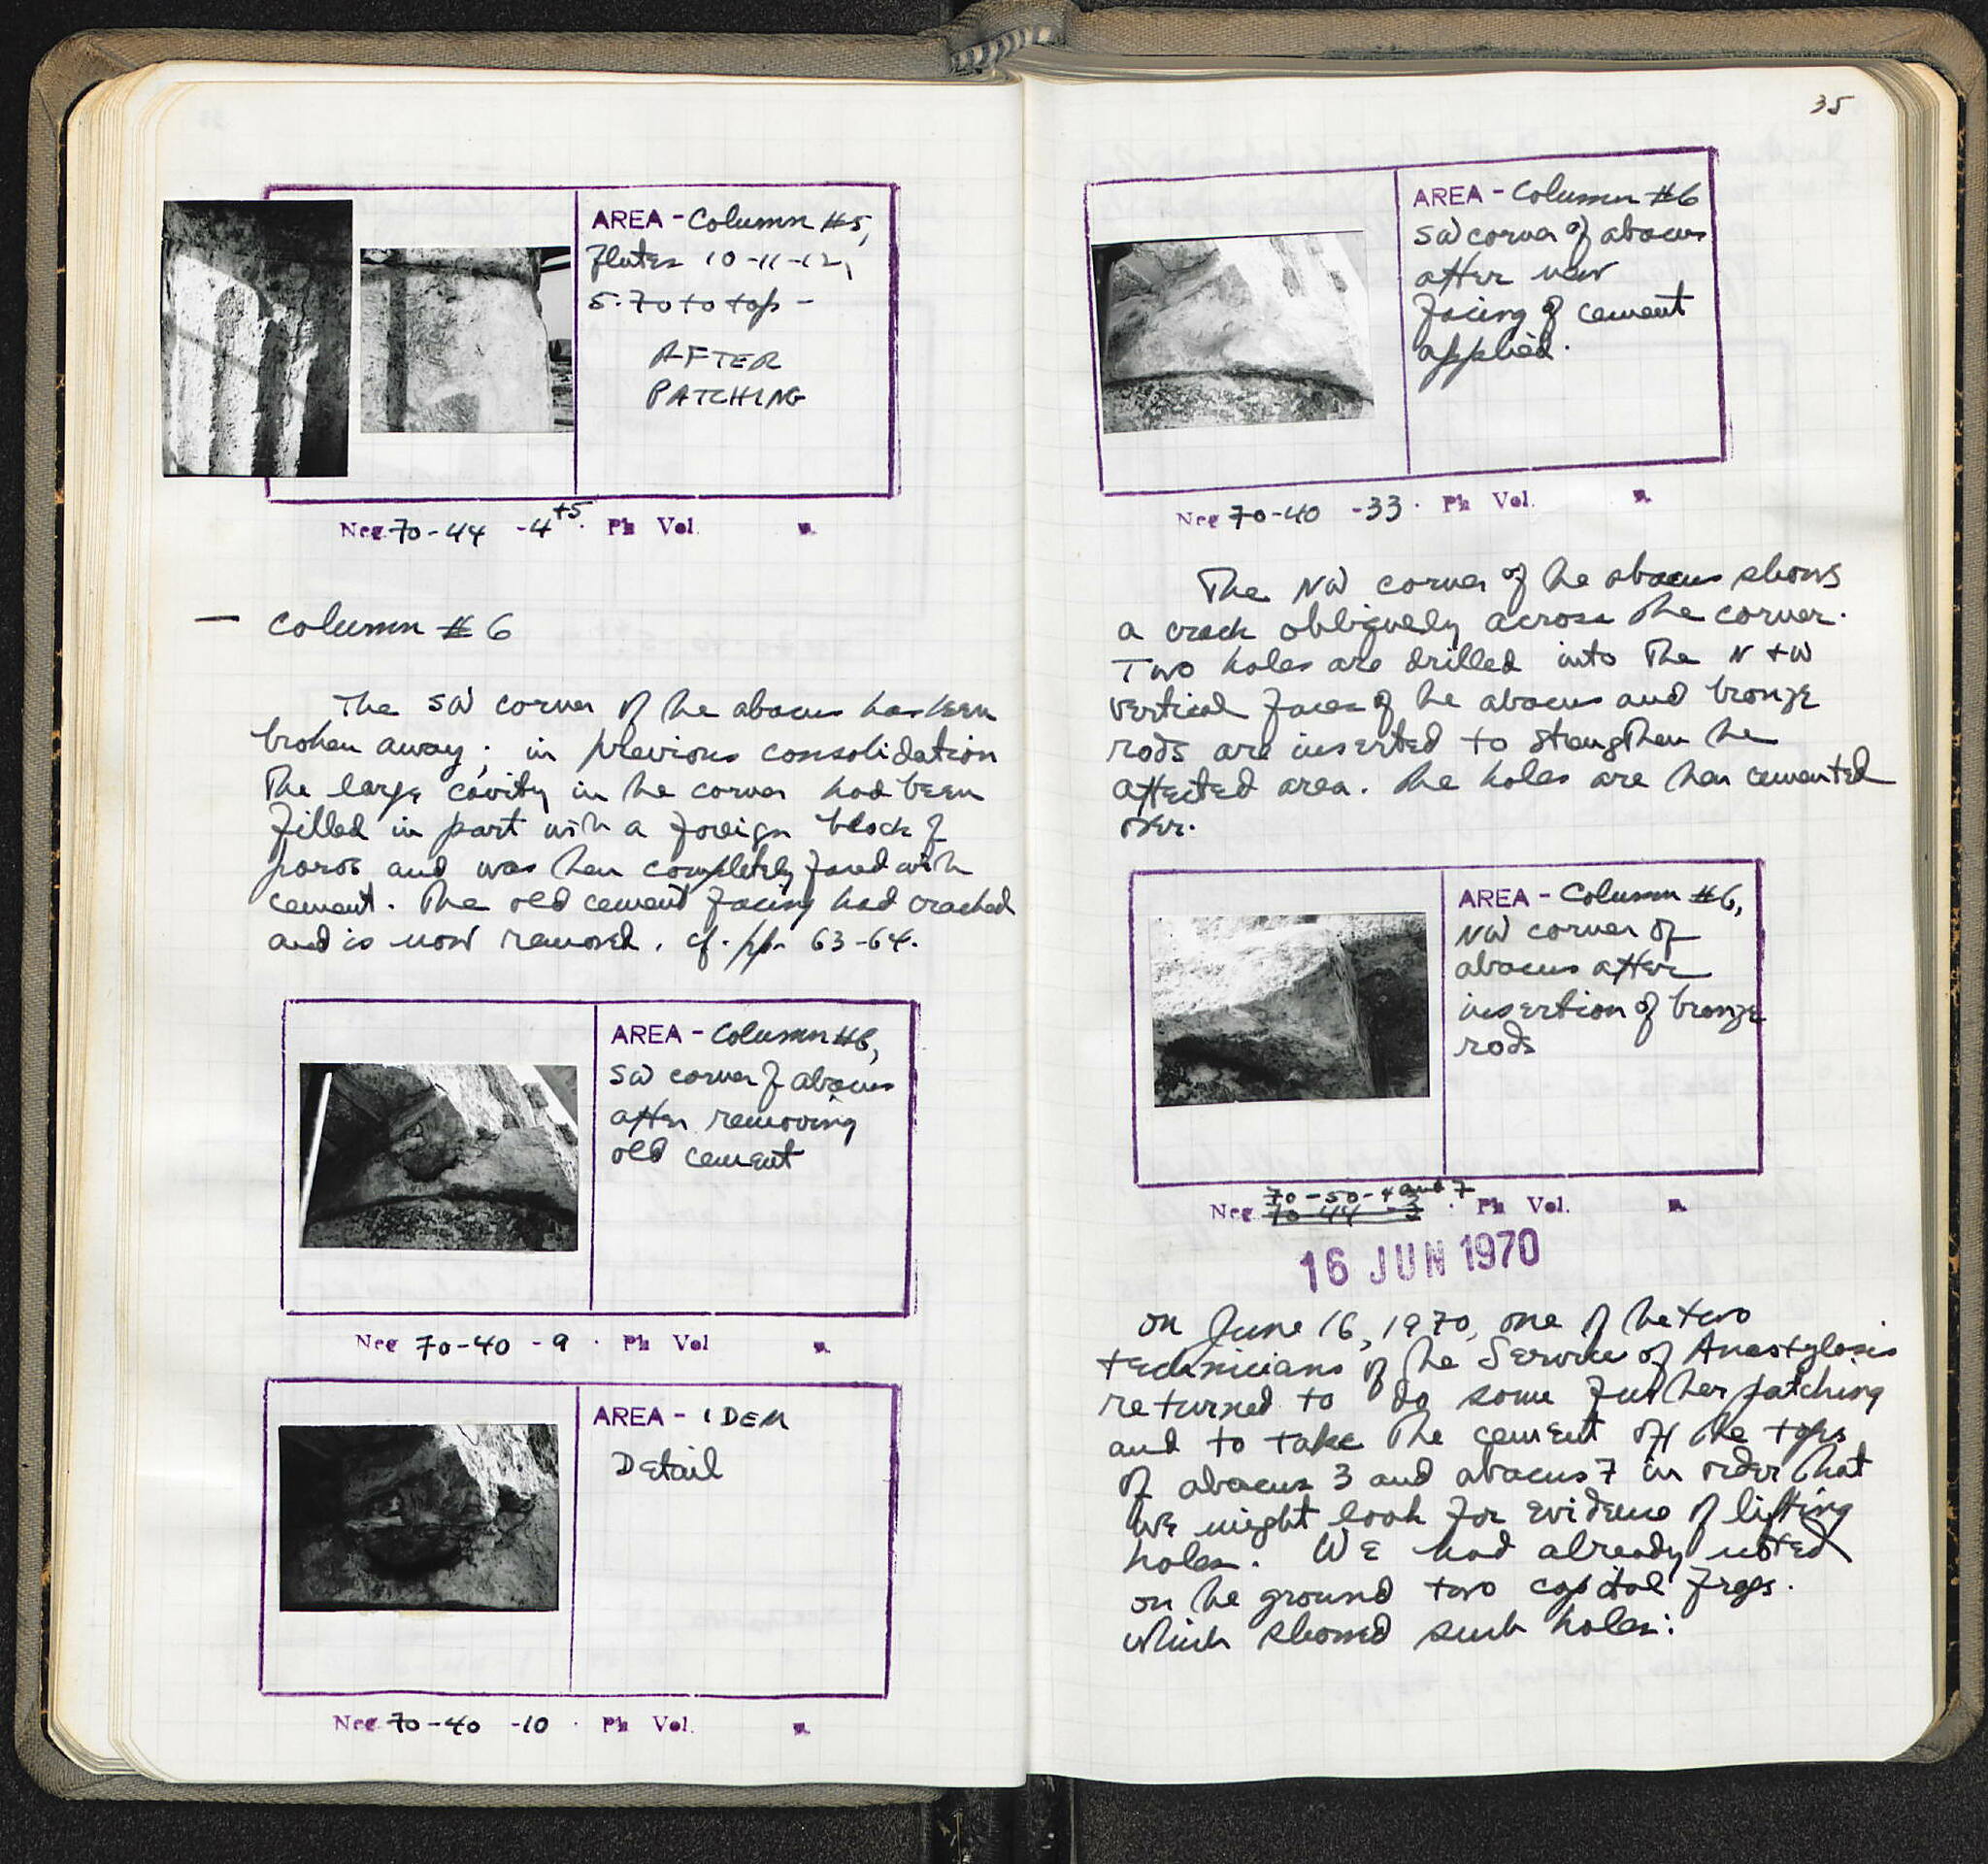 AREA - Column #5,
flutes 10-11-12,
5.70 to top -
AFTER
PATCHING
Neg. 70-44 -4+5. Ph Vol.
— Column #6
The SW corner of the abacus has been
broken away; in previous consolidation
the large cavity in the corner had been
filled in part with a foreign block of
poros and was then completely faced with
cement. The old cement facing had cracked
and is now removed. cf. pp. 63-64.
AREA - Column #6,
SW corner of abacus
after removing
old cement
Neg 70-40 -9 . Ph Vol
AREA - IDEM
Detail
Neg. 70-40 -10 . Ph Vol.
35
AREA - Column #6
SW corner of abacus
after new
facing of cement
applied.
Neg 70-40 -33. Ph Vol.
The NW corner of the abacus shows
a crack obliquely across the corner.
Two holes are drilled into the N + W
vertical faces of the abacus and bronze
rods are inserted to strengthen the
affected area. The holes are then cemented
over.
AREA - Column #6,
NW corner of
abacus after
insertion of bronze
rods
70-50-4 and 7
Neg. 70-44 -3 . Ph Vol.
16 JUN 1970
On June 16, 1970, one of the two
technicians of the Service of Anastylosis
returned to do some further patching
and to take the cement off the tops
of abacus 3 and abacus 7 in order that
we might look for evidence of lifting
holes. We had already noted
on the ground two capital frags.
which showed such holes: